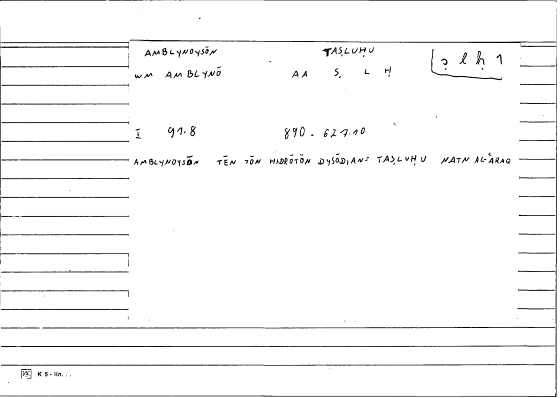 AMBLYNOYSŌN TAṢLUḤU
ṣ lḥ 1
WM AMBLYNŌ AA Ṣ L Ḥ
I 91.8 890. 627.10
AMBLYNOYSŌN TĒN TŌN HIDRŌTŌN DYSŌDIAN= TAṢLUḤU NATN AL-ĀRAQ
K 5 -